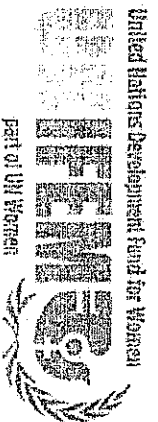 United Nations Development Fund for Women
UNIFEM
part of UN Women